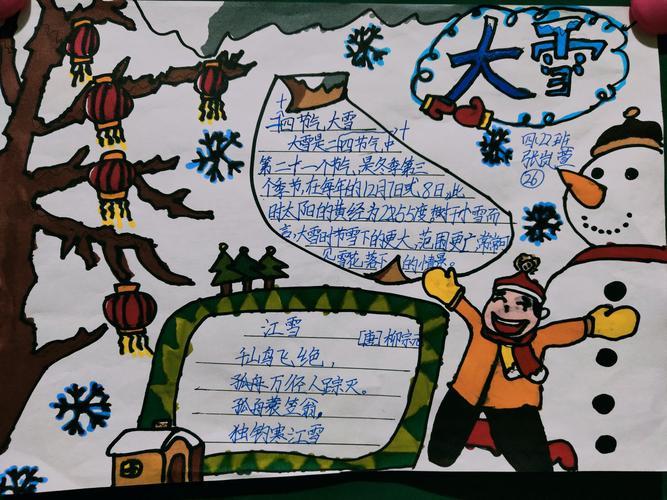 大雪
四.22班
张岚萱
26
二十四节气,大雪
大雪是二十四节气中
第二十一个节气,是冬季第三
个季节,在每年的12月7日或8日,此
时太阳的黄经为 度 于小雪而
言,大雪时节雪下的更大,范围更广,常常可
见雪花落下的情景。
江雪
[唐]柳宗元
千山鸟飞绝,
孤舟万径人踪灭。
孤舟蓑笠翁,
独钓寒江雪